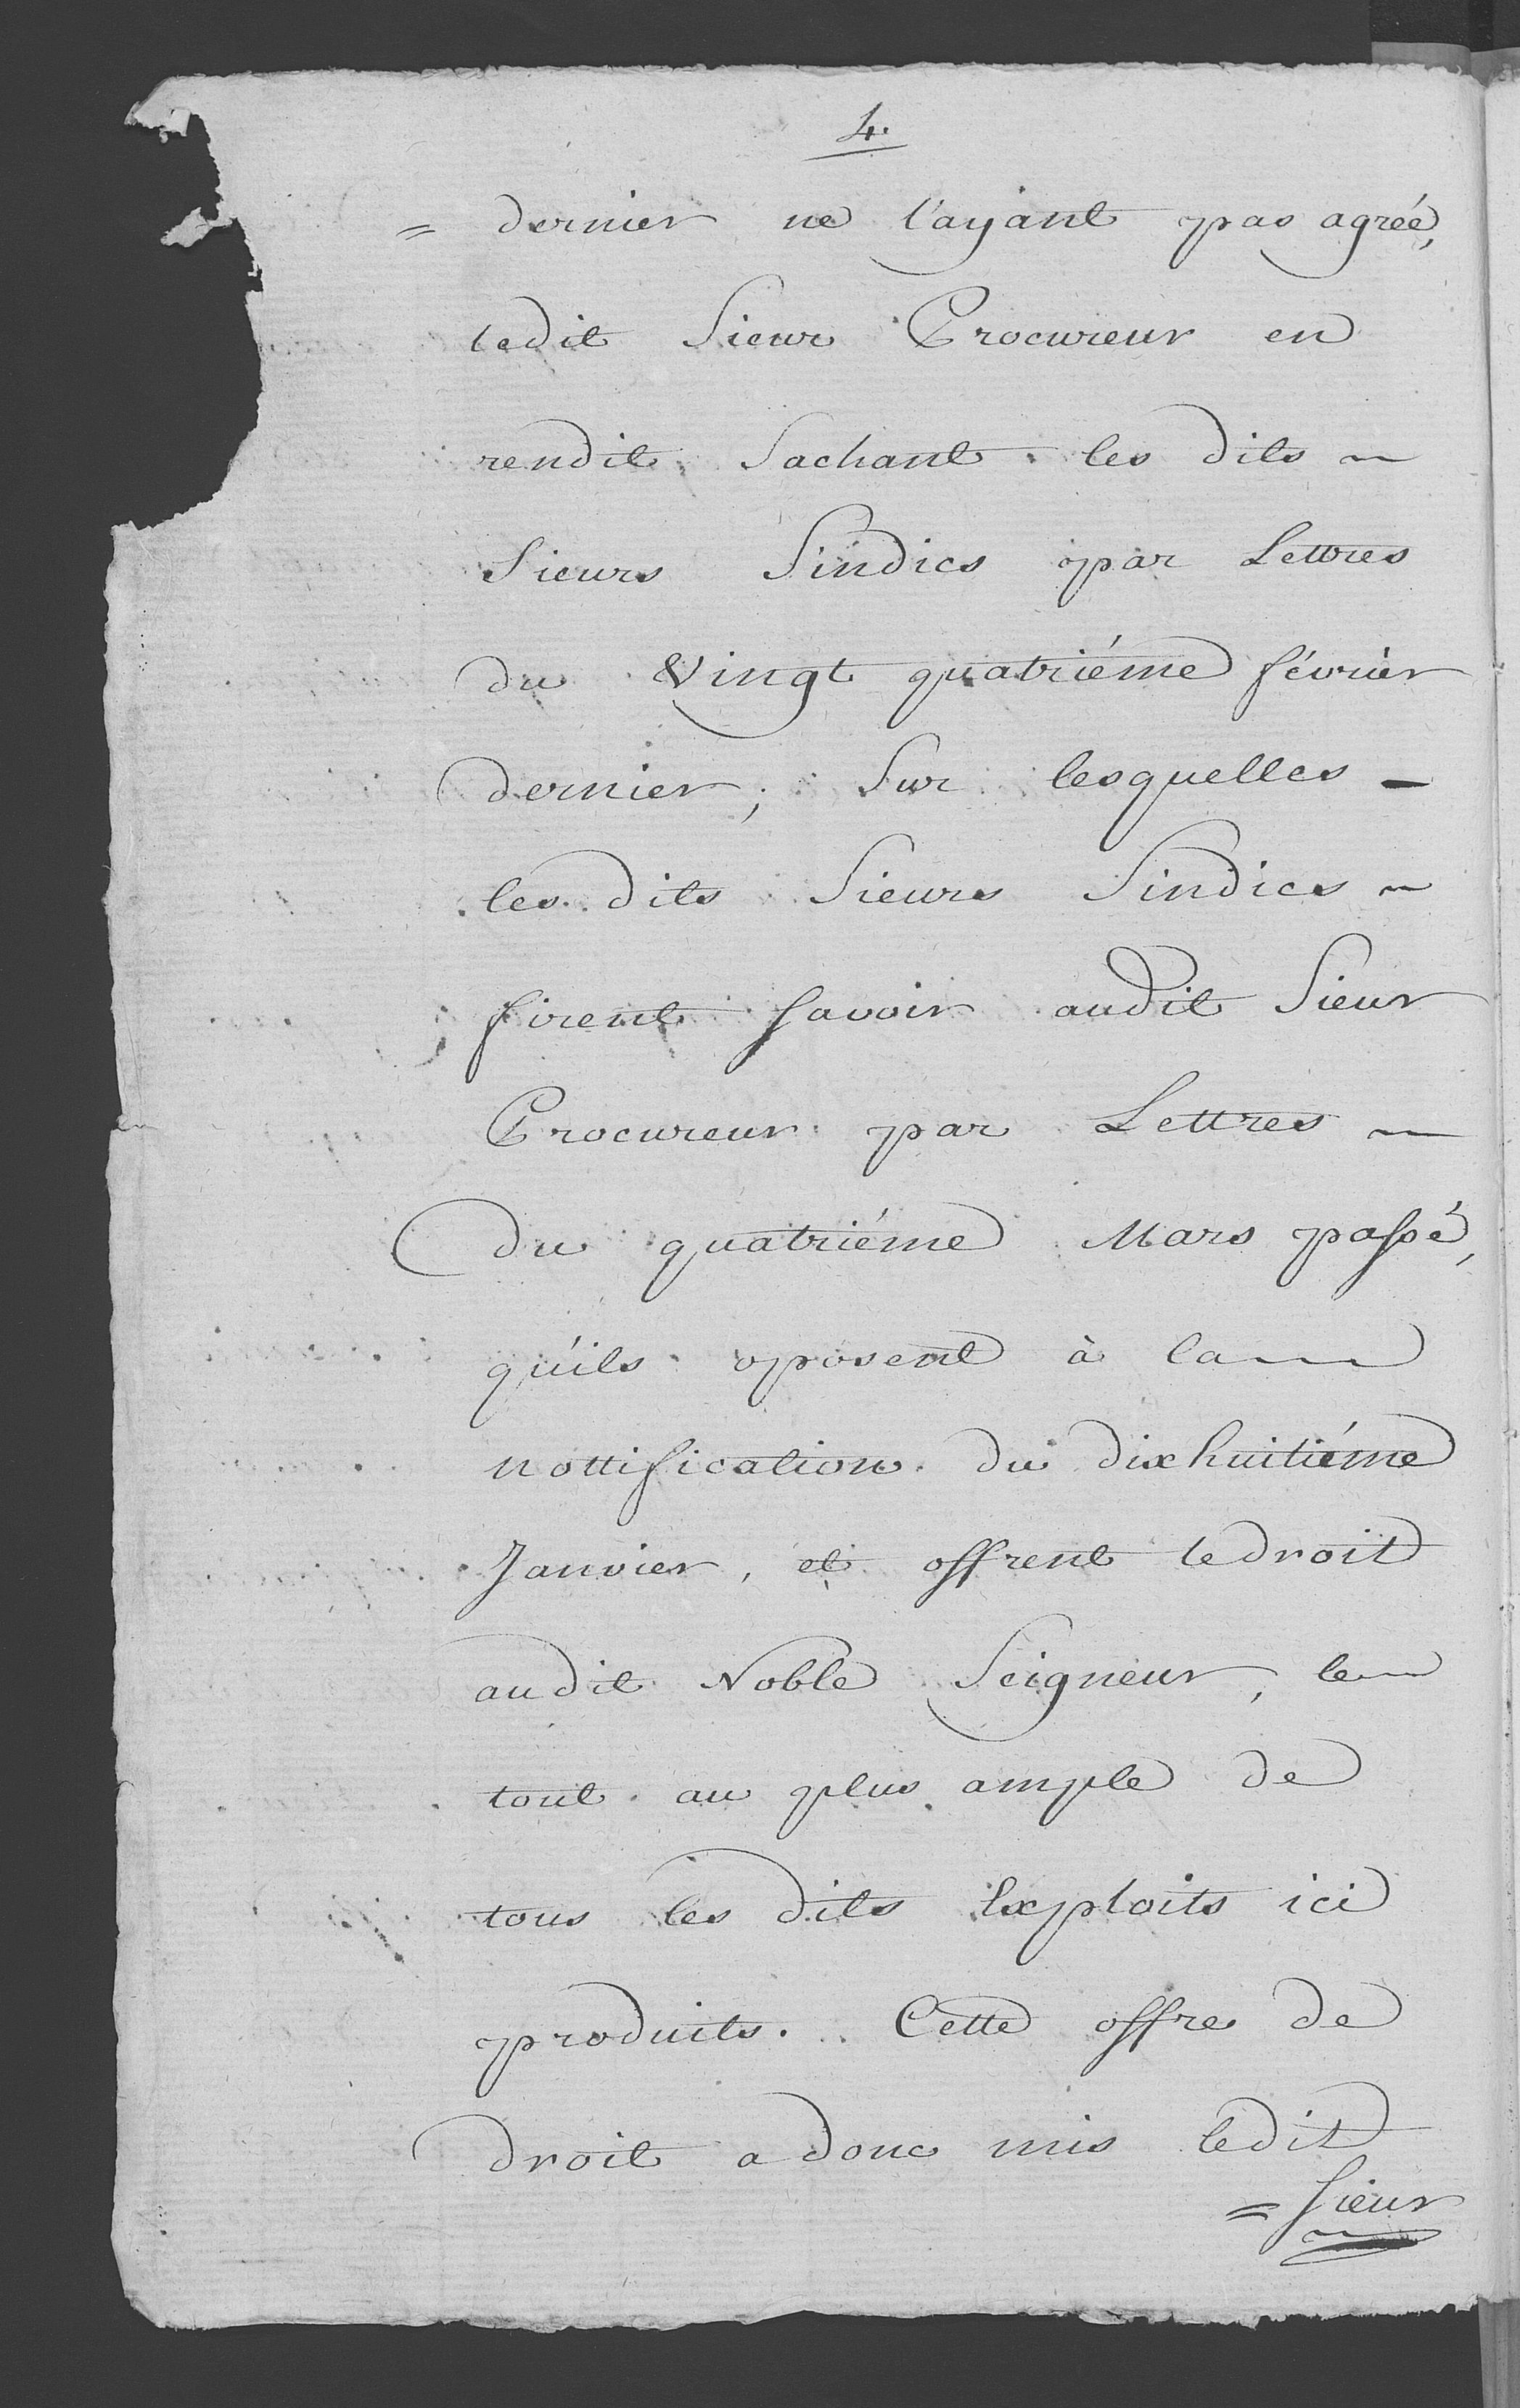 4.
= dernier ne l'ayant pas agréé,
ledit Sieur Procureur en
rendit Sachant les dits ~
Sieurs Sindics par Lettres
du Vingt quatriéme février
dernier; Sur lesquelles -
les dits Sieurs Sindics ~
firent savoir audit Sieur
Procureur par Lettres ~
du quatriéme Mars passé,
qu'ils oposent à la ~
nottification du dixhuitiéme
Janvier, et offrent le droit
audit Noble Seigneur, le ~
tout au plus ample de
tous les dits Exploits ici
produits. Cette offre de
droit a donc mis ledit
= Sieur